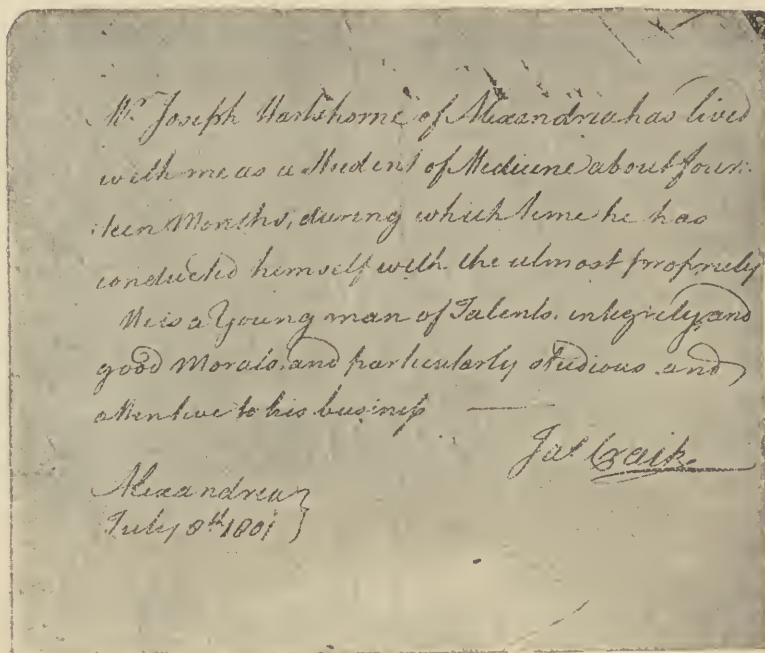 Mr Joseph Hartshorne of Alexandria has lived
with me as a Student of Medicine about four:
:teen Months, during which time he has
conducted himself with the utmost propriety
He is a Young man of Talents, integrity and
good Morals, and particularly studious and
attentive to his business —
Jas Craik
Alexandria
July 8th 1801